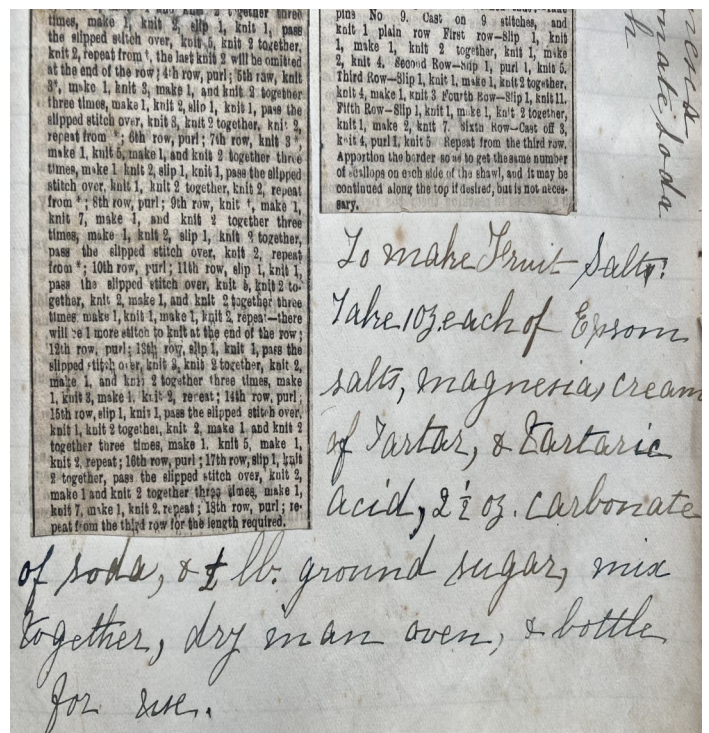 times, make 1, knit 2, slip 1, knit 1, pass
the slipped stitch over, knit 5, knit 2 together,
knit 2, repeat from *, the last knit 2 will be omitted
at the end of the row; 4th row, purl; 5th row, knit
3*, make 1, knit 3, make 1, and knit 2 together
three times, make 1, knit 2, slip 1, knit 1, pass the
slipped stitch over, knit 3, knit 2 together, knit 2,
repeat from *; 6th row, purl; 7th row, knit 3 *,
make 1, knit 5, make 1, and knit 2 together three
times, make 1 knit 2, slip 1, knit 1, pass the slipped
stitch over, knit 1, knit 2 together, knit 2, repeat
from *; 8th row, purl; 9th row, knit *, make 1,
knit 7, make 1, and knit 2 together three
times, make 1, knit 2, slip 1, knit 2 together,
pass the slipped stitch over, knit 2, repeat
from *; 10th row, purl; 11th row, slip 1, knit 1,
pass the slipped stitch over, knit 5, knit 2 to-
gether, knit 2, make 1, and knit 2 together three
times make 1, knit 2, make 1, knit 2, repeat—there
will be 1 more stitch to knit at the end of the row;
12th row, purl; 13th row, slip 1, knit 1, pass the
slipped stitch over, knit 3, knit 2 together, knit 2,
make 1, and knit 2 together three times, make
1, knit 3, make 1, knit 2, repeat; 14th row, purl;
15th row, slip 1, knit 1, pass the slipped stitch over,
knit 1, knit 2 together, knit 2, make 1, and knit 2
together three times, make 1, knit 5, make 1,
knit 2, repeat; 16th row, purl; 17th row, slip 1, knit
2 together, pass the slipped stitch over, knit 2,
make 1 and knit 2 together three times, make 1,
knit 7, make 1, knit 2, repeat; 18th row, purl; re-
peat from the third row for the length required.
pins No 9. Cast on 9 stitches, and
knit 1 plain row First row—Slip 1, knit
1, make 1, knit 2 together, knit 1, make
2, knit 4. Second Row—Slip 1, purl 1, knit 5.
Third Row—Slip 1, knit 1, make 1, knit 2 together,
knit 4, make 1, knit 3 Fourth Row—Slip 1, knit 11.
Fifth Row—Slip 1, knit 1, make 1, knit 2 together,
knit 1, make 2, knit 7. Sixth Row—Cast off 3,
knit 4, purl 1, knit 5 Repeat from the third row.
Apportion the border so as to get the same number
of scallops on each side of the shawl, and it may be
continued along the top if desired, but is not neces-
sary.
soda
To make Fruit Salts.
Take 1 oz. each of Epsom
salts, magnesia, cream
of Tartar, & tartaric
acid, 2½ oz. carbonate
of soda, & ½ lb. ground sugar, mix
together, dry in an oven, & bottle
for use.